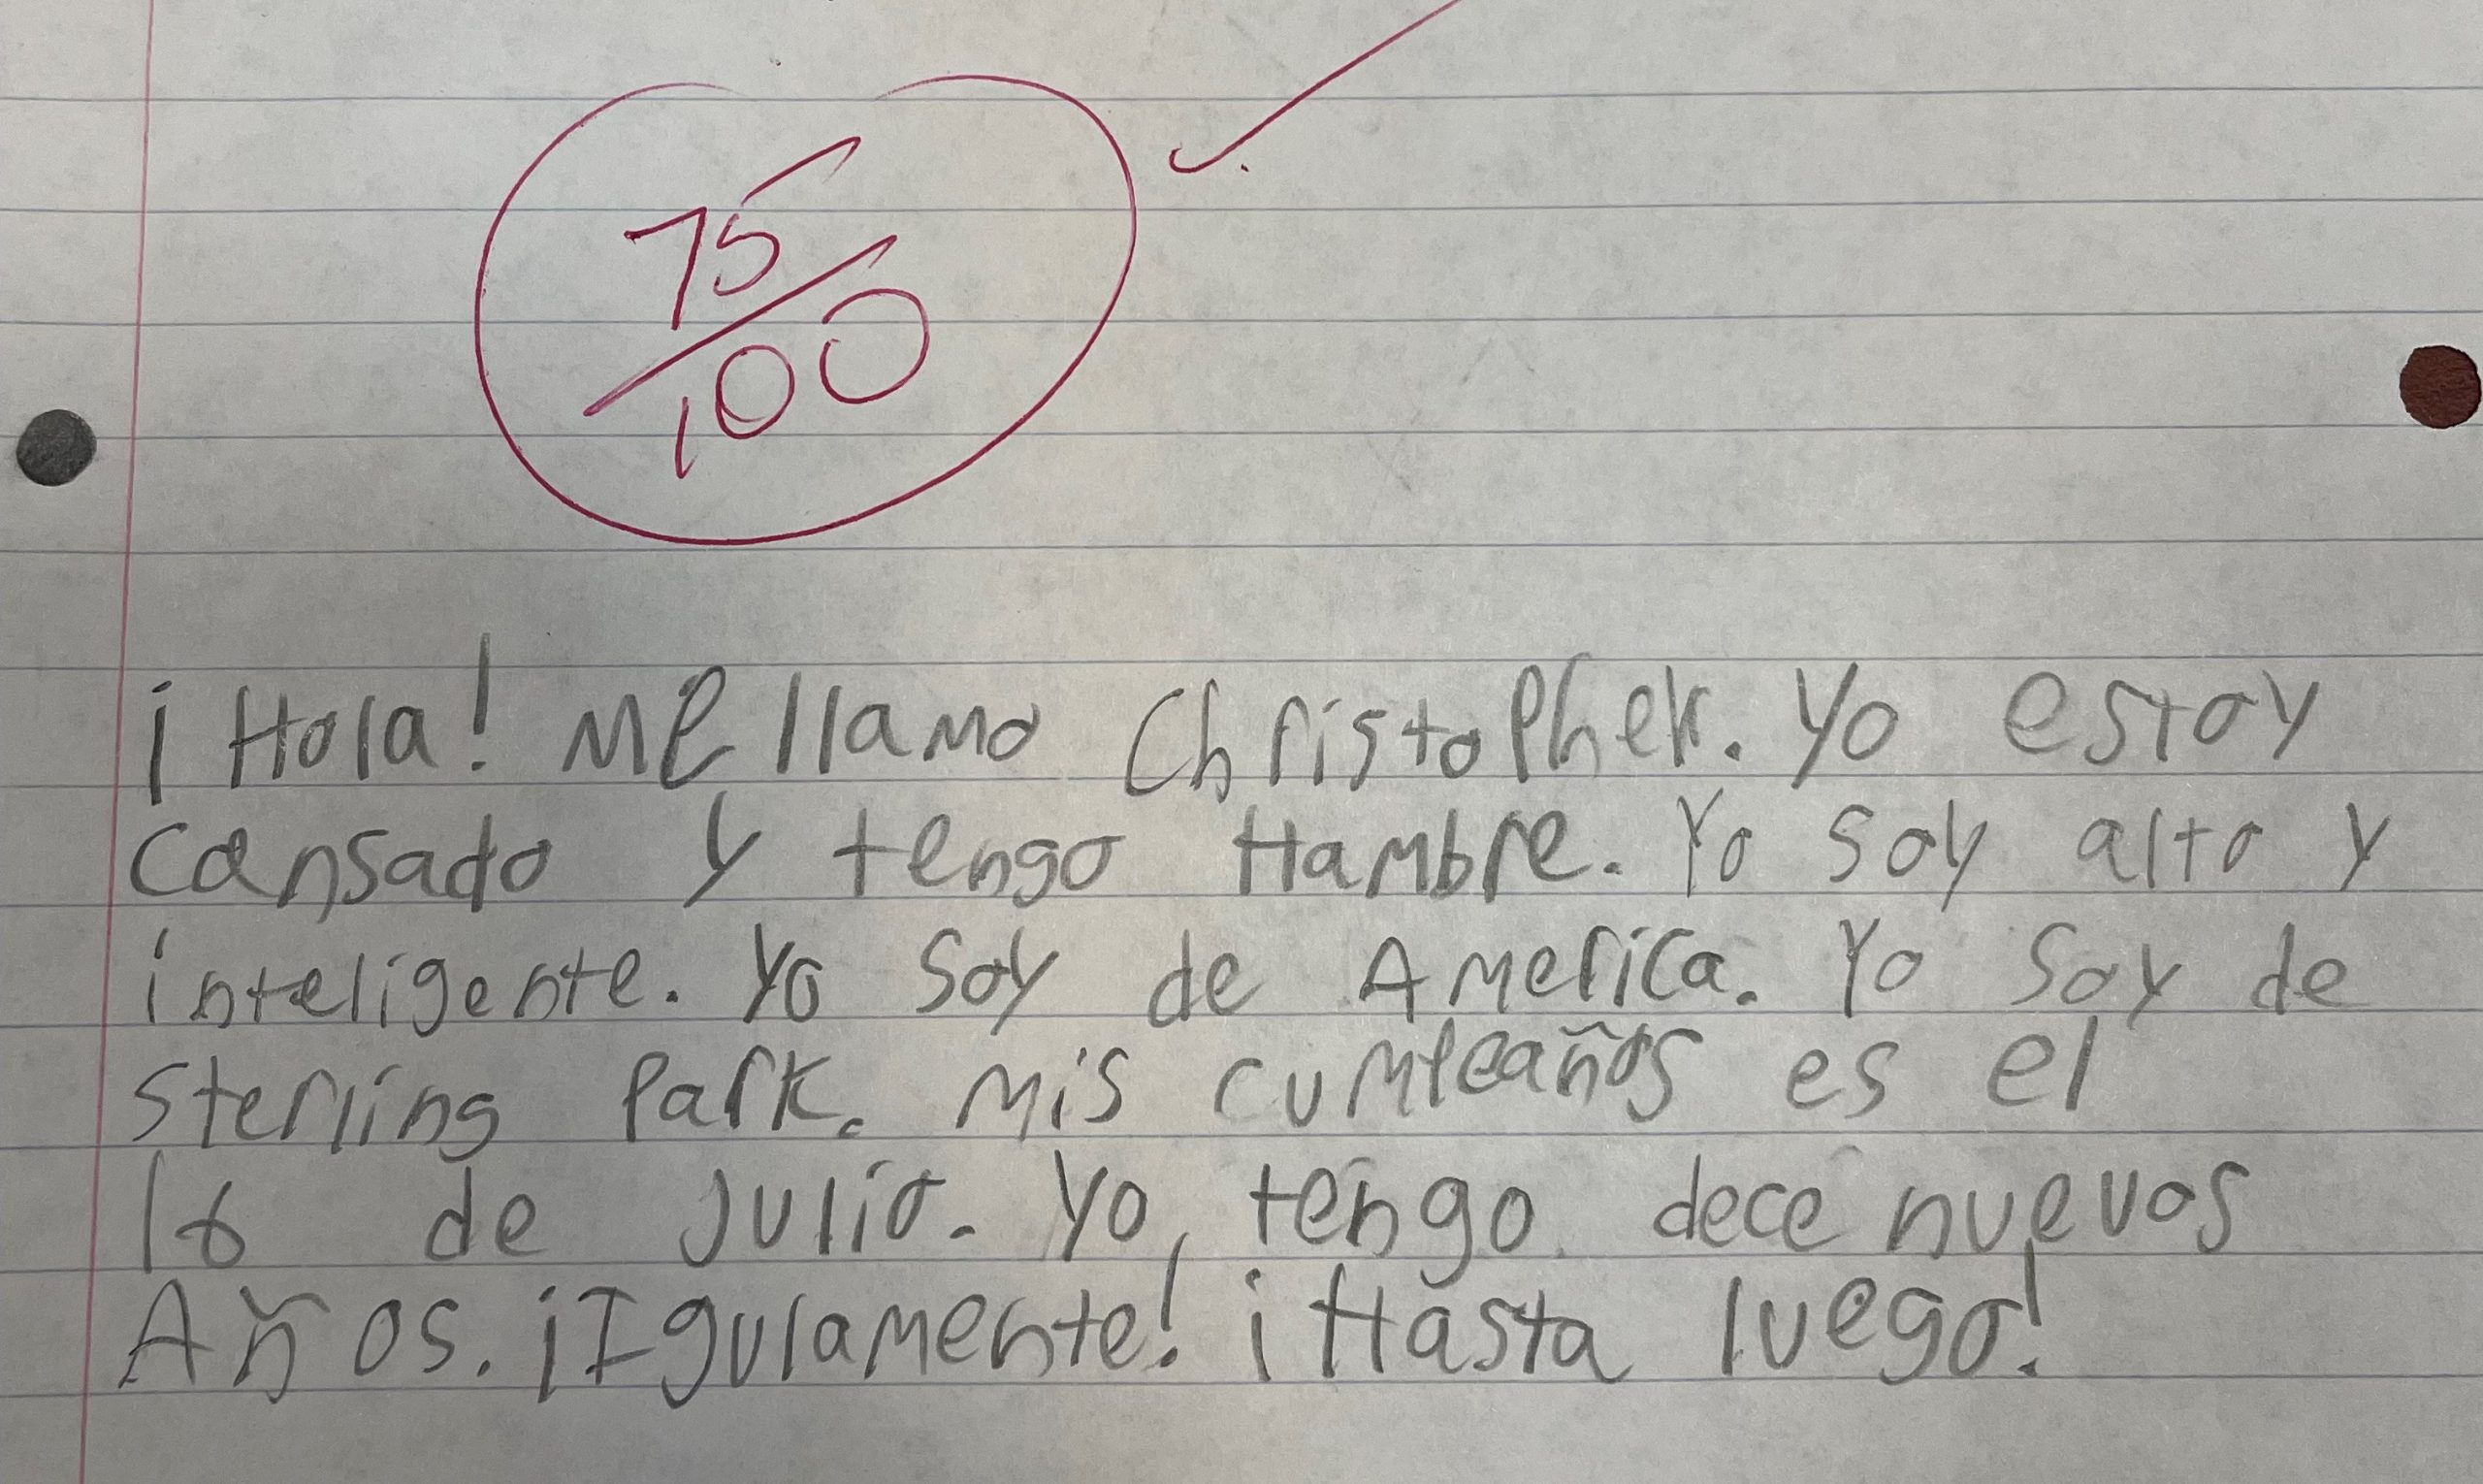 75/100
¡Hola! Me llamo Christopher. Yo estoy
cansado y tengo Hambre. Yo soy alto y
inteligente. Yo soy de America. Yo soy de
sterling Park. Mis cumpleaños es el
16 de Julio. Yo, tengo dece nuevos
Años. ¡Igulamente! ¡Hasta luego!